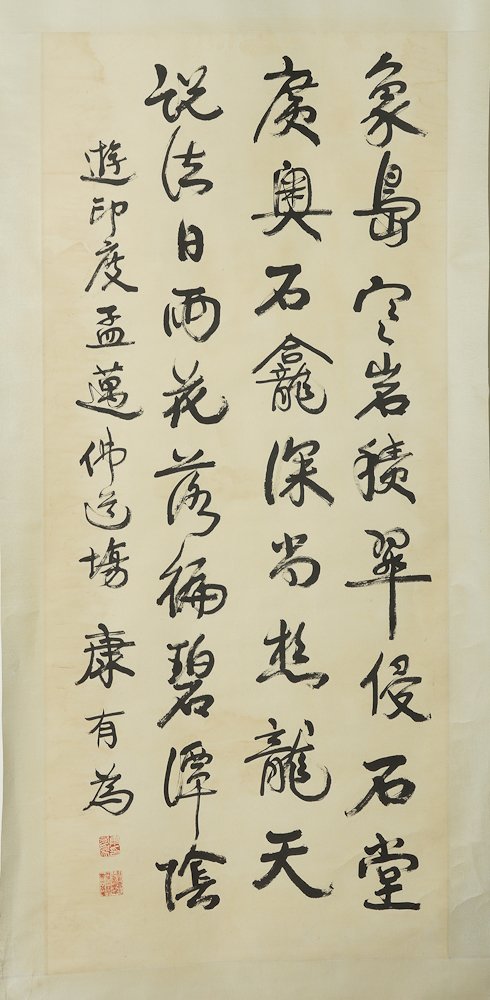 象島空岩積翠侵石堂
廣奧石龕深尚想龍天
説法日雨花落徧碧潭陰
遊印度孟邁佛道場 康有為